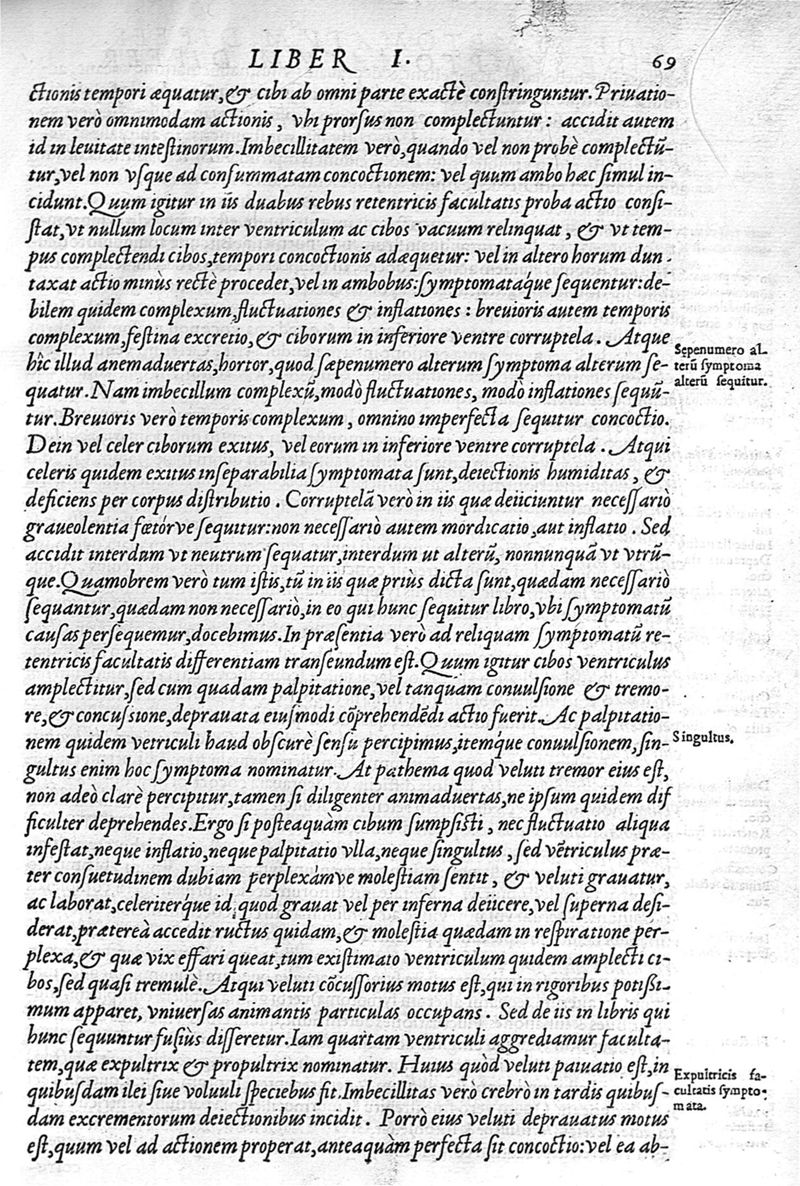 LIBER I. 69
ctionis tempori æquatur, & cibi ab omni parte exactè constringuntur. Priuatio-
nem verò omnimodam actionis, vbi prorsus non complectuntur: accidit autem
id in leuitate intestinorum. Imbecillitatem verò, quando vel non probè complectũ-
tur, vel non vsque ad consummatam concoctionem: vel quum ambo hæc simul in-
cidunt. Quum igitur in iis duabus rebus retentricis facultatis proba actio consi-
stat, vt nullum locum inter ventriculum ac cibos vacuum relinquat, & vt tem-
pus complectendi cibos, tempori concoctionis adæquetur: vel in altero horum dun
taxat actio minùs rectè procedet, vel in ambobus: symptomatáque sequentur: de-
bilem quidem complexum, fluctuationes & inflationes: breuioris autem temporis
complexum, festina excretio, & ciborum in inferiore ventre corruptela. Atque
hîc illud anemaduertas, hortor, quod sæpenumero alterum symptoma alterum se-
Sępenumero al-
terũ symptoma
alterũ sequitur.
quatur. Nam imbecillum complexũ, modò fluctuationes, modò inflationes sequũ-
tur. Breuioris verò temporis complexum, omnino imperfecta sequitur concoctio.
Dein vel celer ciborum exitus, vel eorum in inferiore ventre corruptela. Atqui
celeris quidem exitus inseparabilia symptomata sunt, deiectionis humiditas, &
deficiens per corpus distributio. Corruptelã verò in iis quæ deiiciuntur necessariò
graueolentia fœtórve sequitur: non necessariò autem mordicatio, aut inflatio. Sed
accidit interdum vt neutrum sequatur, interdum ut alterũ, nonnunquã vt vtrũ-
que. Quamobrem verò tum istis, tũ in iis quæ priùs dicta sunt, quædam necessariò
sequantur, quædam non necessariò, in eo qui hunc sequitur libro, vbi symptomatũ
causas persequemur, docebimus. In præsentia verò ad reliquam symptomatũ re-
tentricis facultatis differentiam transeundum est. Quum igitur cibos ventriculus
amplectitur, sed cum quadam palpitatione, vel tanquàm conuulsione & tremo-
re, & concussione, deprauata eiusmodi cõprehendẽdi actio fuerit. Ac palpitatio-
nem quidem vẽtriculi haud obscurè sensu percipimus, itemque conuulsionem, sin-
Singultus.
gultus enim hoc symptoma nominatur. At pathema quod veluti tremor eius est,
non adeò clarè percipitur, tamen si diligenter animaduertas, ne ipsum quidem dif
ficulter deprehendes. Ergo si posteaquàm cibum sumpsisti, nec fluctuatio aliqua
infestat, neque inflatio, neque palpitatio vlla, neque singultus, sed vẽtriculus præ-
ter consuetudinem dubiam perplexámve molestiam sentit, & veluti grauatur,
ac laborat, celeriterque id, quod grauat vel per inferna deiicere, vel superna desi-
derat, prætereà accedit ructus quidam, & molestia quædam in respiratione per-
plexa, & quæ vix effari queat, tum existimato ventriculum quidem amplecti ci-
bos, sed quasi tremulè. Atqui veluti cõcussorius motus est, qui in rigoribus potißi-
mum apparet, vniuersas animantis particulas occupans. Sed de iis in libris qui
hunc sequuntur fusiùs disseretur. Iam quartam ventriculi aggrediamur faculta-
tem, quæ expultrix & propultrix nominatur. Huius quòd veluti patuatio est, in
Expultricis fa-
cultatis sympto-
mata.
quibusdam ilei siue voluuli speciebus fit. Imbecillitas verò crebrò in tardis quibus-
dam excrementorum deiectionibus incidit. Porrò eius veluti deprauatus motus
est, quum vel ad actionem properat, anteaquàm perfecta sit concoctio: vel ea ab-